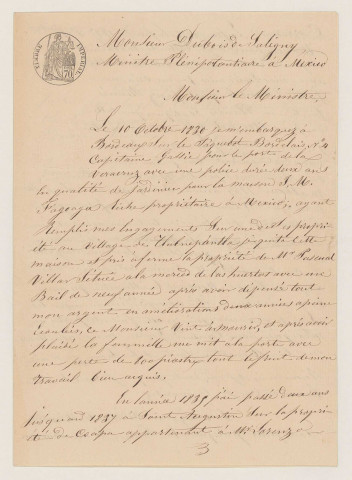 TIMBRE IMPERIAL
70
Monsieur Dubois de Saligny
Ministre Plénipotentiaire à Mexico
Monsieur le Ministre,
Le 10 Octobre 1830 je m'embarquai à
Bordeaux sur le Paquebot Bordelais N° 4
Capitaine pour le port de la
Veracruz avec une police de deux ans
en qualité de jardinier pour la maison J. M.
Fagoaga riche propriétaire à Mexico, ayant
remplis mes engagements sur une de ses propri
étés au village de Tlalnepantla je quitté cette
maison et pris à ferme la propriété de Mr Pascual
Villar située à la mercée de las huertas avec un
Bail de neuf année après avoir dépensé tout
mon argent en améliorations deux années après
ce Monsieur vint à mourir, et après avoir
plaidé la me mit à la porte avec
une perte de 700 piastres tout le fruit de mon
travail bien acquis.
En l'année 1835 j'ai passé deux ans
jusqu'en 1837 à Saint Augustin sur la propri
été de Coapa appartenant à Mr Lorenzo